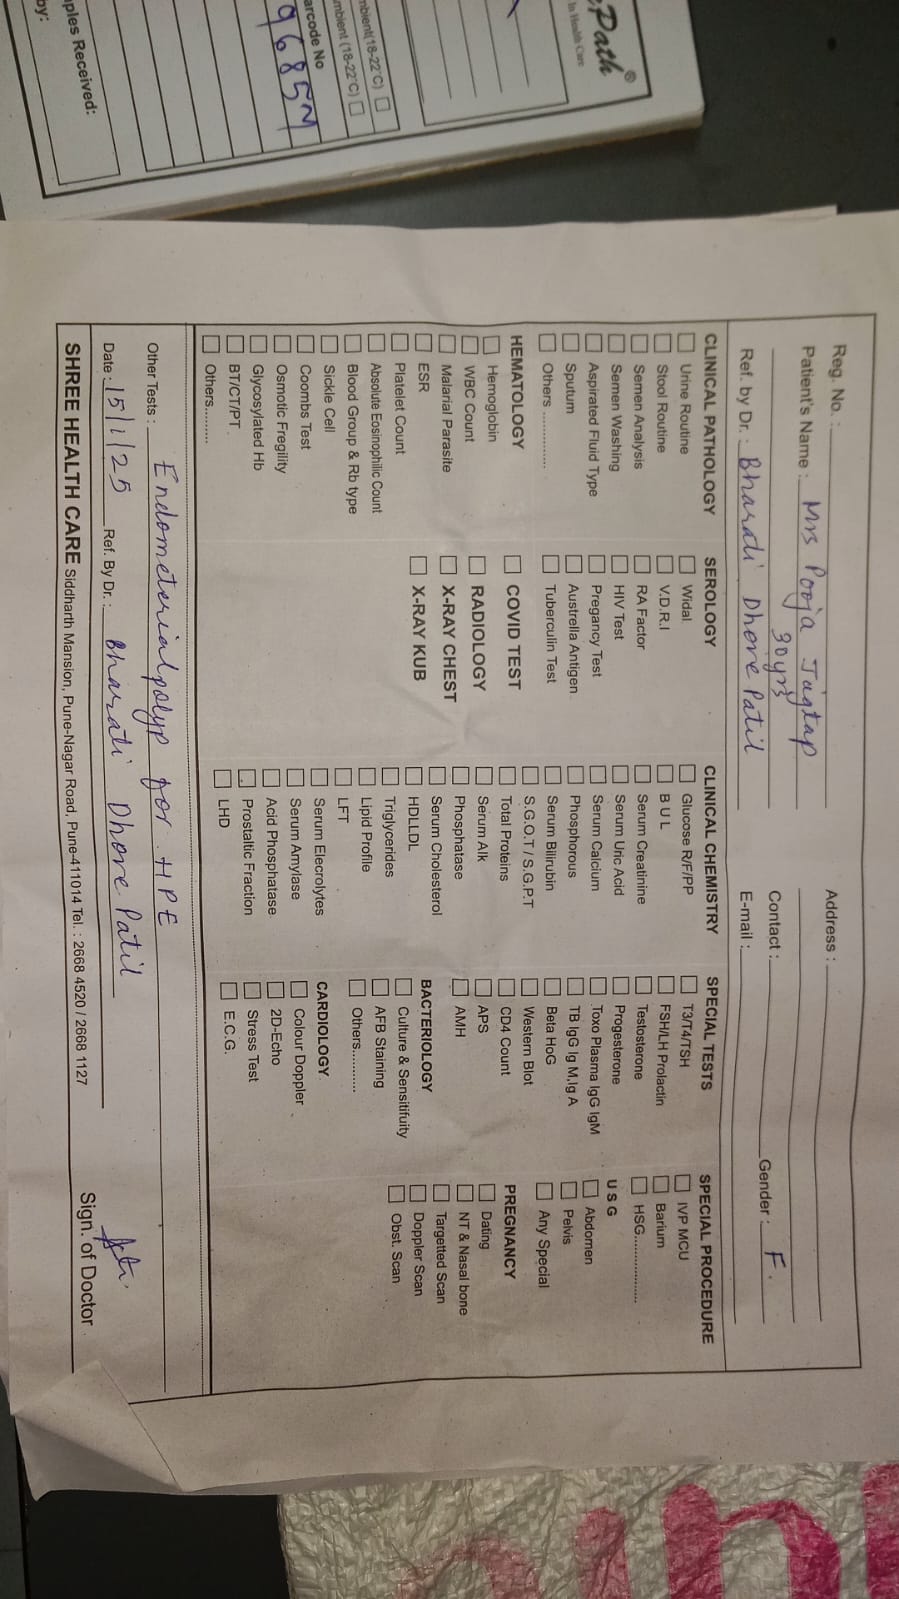 Path®
In Health Care
mbient(18-22°C)
mbient (18-22°C)
arcode No
9685M
ples Received:
by:
Reg. No. :
Patient's Name : Mrs Pooja Jagtap
30yrs
Ref. by Dr. : Bharati Dhore Patil
Address :
Contact :
Gender : F.
E-mail :
CLINICAL PATHOLOGY
Urine Routine
Stool Routine
Semen Analysis
Semen Washing
Aspirated Fluid Type
Sputum
Others ..............
HEMATOLOGY
Hemoglobin
WBC Count
Malarial Parasite
ESR
Platelet Count
Absolute Eosinophilic Count
Blood Group & Rb type
Sickle Cell
Coombs Test
Osmotic Fregility
Glycosylated Hb
BT/CT/PT
Others........
SEROLOGY
Widal
V.D.R.I
RA Factor
HIV Test
Pregancy Test
Austrella Antigen
Tuberculin Test
COVID TEST
RADIOLOGY
X-RAY CHEST
X-RAY KUB
CLINICAL CHEMISTRY
Glucose R/F/PP
B U L
Serum Creatinine
Serum Uric Acid
Serum Calcium
Phosphorous
Serum Bilirubin
S.G.O.T / S.G.P.T
Total Proteins
Serum Alk
Phosphatase
Serum Cholesterol
HDLLDL
Triglycerides
Lipid Profile
LFT
Serum Elecrolytes
Serum Amylase
Acid Phosphatase
Prostaltic Fraction
LHD
SPECIAL TESTS
T3/T4/TSH
FSH/LH Prolactin
Testosterone
Progesterone
Toxo Plasma IgG IgM
TB IgG Ig M,Ig A
Beta HoG
Western Blot
CD4 Count
APS
AMH
BACTERIOLOGY
Culture & Sensitifuity
AFB Staining
Others...........
CARDIOLOGY
Colour Doppler
2D-Echo
Stress Test
E.C.G.
SPECIAL PROCEDURE
IVP MCU
Barium
HSG.................
U S G
Abdomen
Pelvis
Any Special
PREGNANCY
Dating
NT & Nasal bone
Targetted Scan
Doppler Scan
Obst. Scan
Other Tests : Endometerialpolyp for HPE
Date : 15/1/25 Ref. By Dr. : Bharati Dhore Patil
Sign. of Doctor
SHREE HEALTH CARE Siddharth Mansion, Pune-Nagar Road, Pune-411014 Tel. : 2668 4520 / 2668 1127